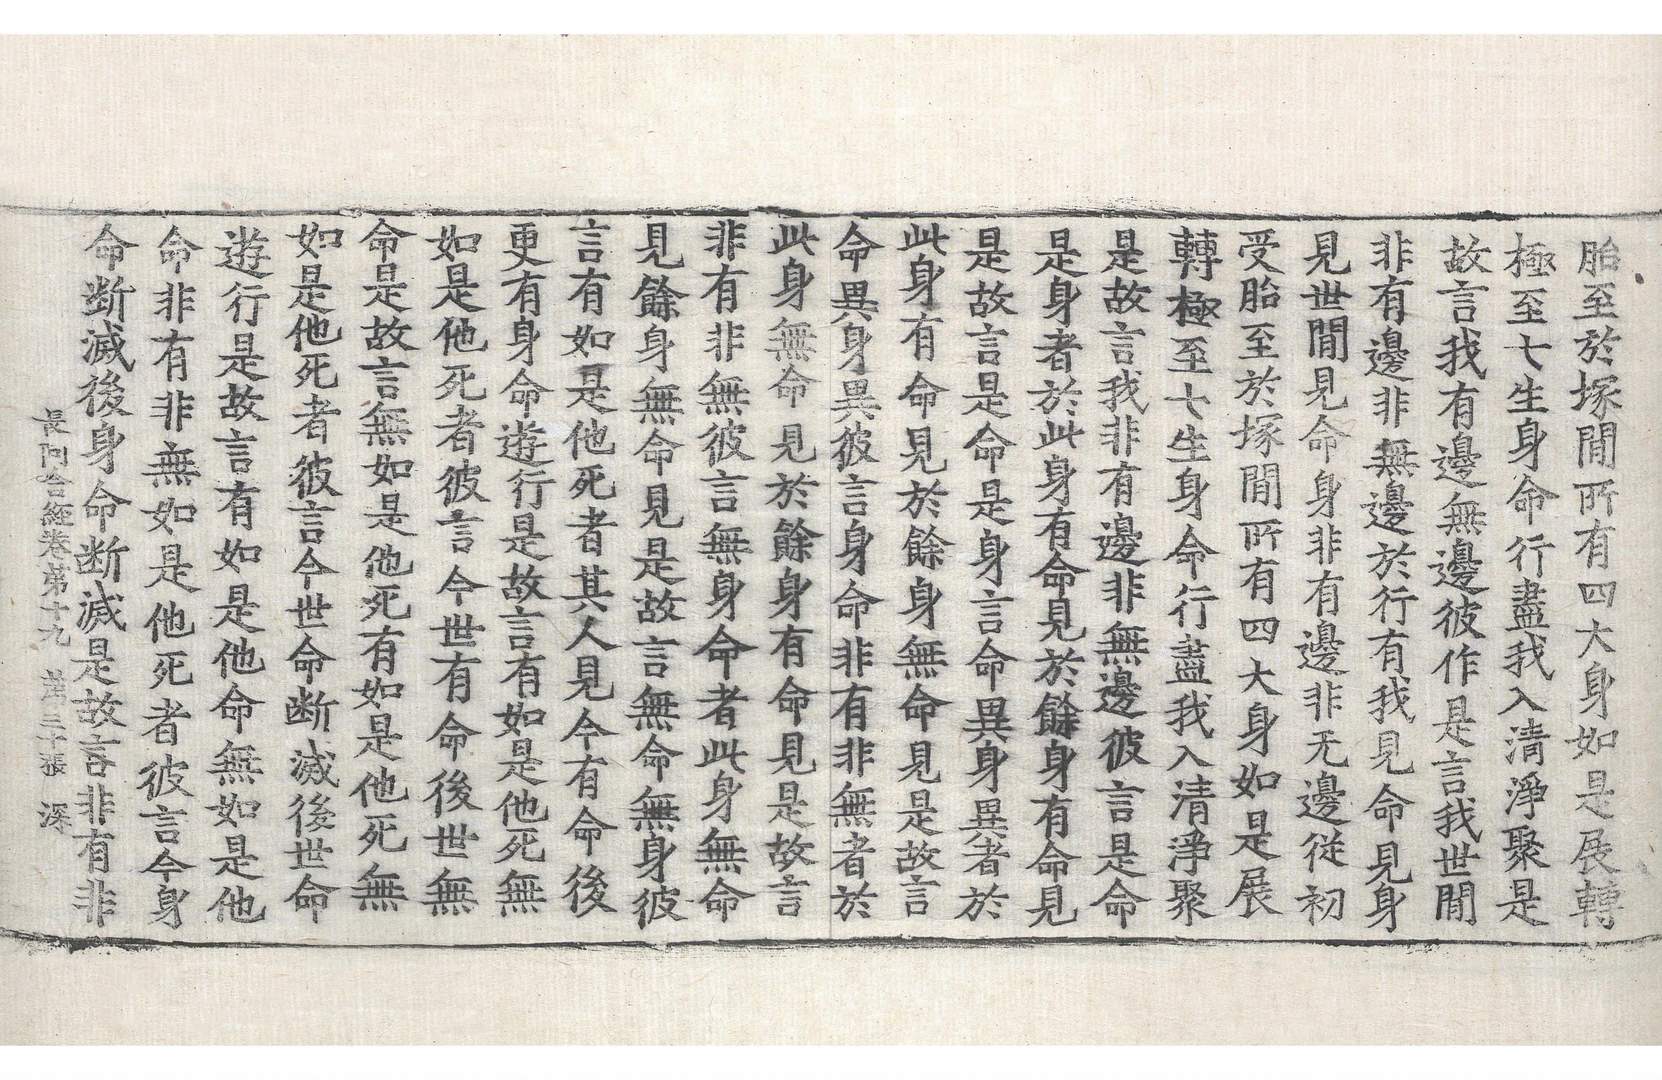 胎至於塚間所有四大身如是展轉
極至七生身命行盡我入清淨聚是
故言我有邊無邊彼作是言我世間
非有邊非無邊於行有我見命見身
見世間見命身非有邊非无邊從初
受胎至於塚間所有四大身如是展
轉極至七生身命行盡我入清淨聚
是故言我非有邊非無邊彼言是命
是身者於此身有命見於餘身有命見
是故言是命是身言命異身異者於
此身有命見於餘身無命見是故言
命異身異彼言身命非有非無者於
此身無命見於餘身有命見是故言
非有非無彼言無身命者此身無命
見餘身無命見是故言無命無身彼
言有如是他死者其人見今有命後
更有身命遊行是故言有如是他死無
如是他死者彼言今世有命後世無
命是故言無如是他死有如是他死無
如是他死者彼言今世命断滅後世命
遊行是故言有如是他命無如是他
命非有非無如是他死者彼言今身
命断滅後身命断滅是故言非有非
長阿含經卷第十九 第三十張 深